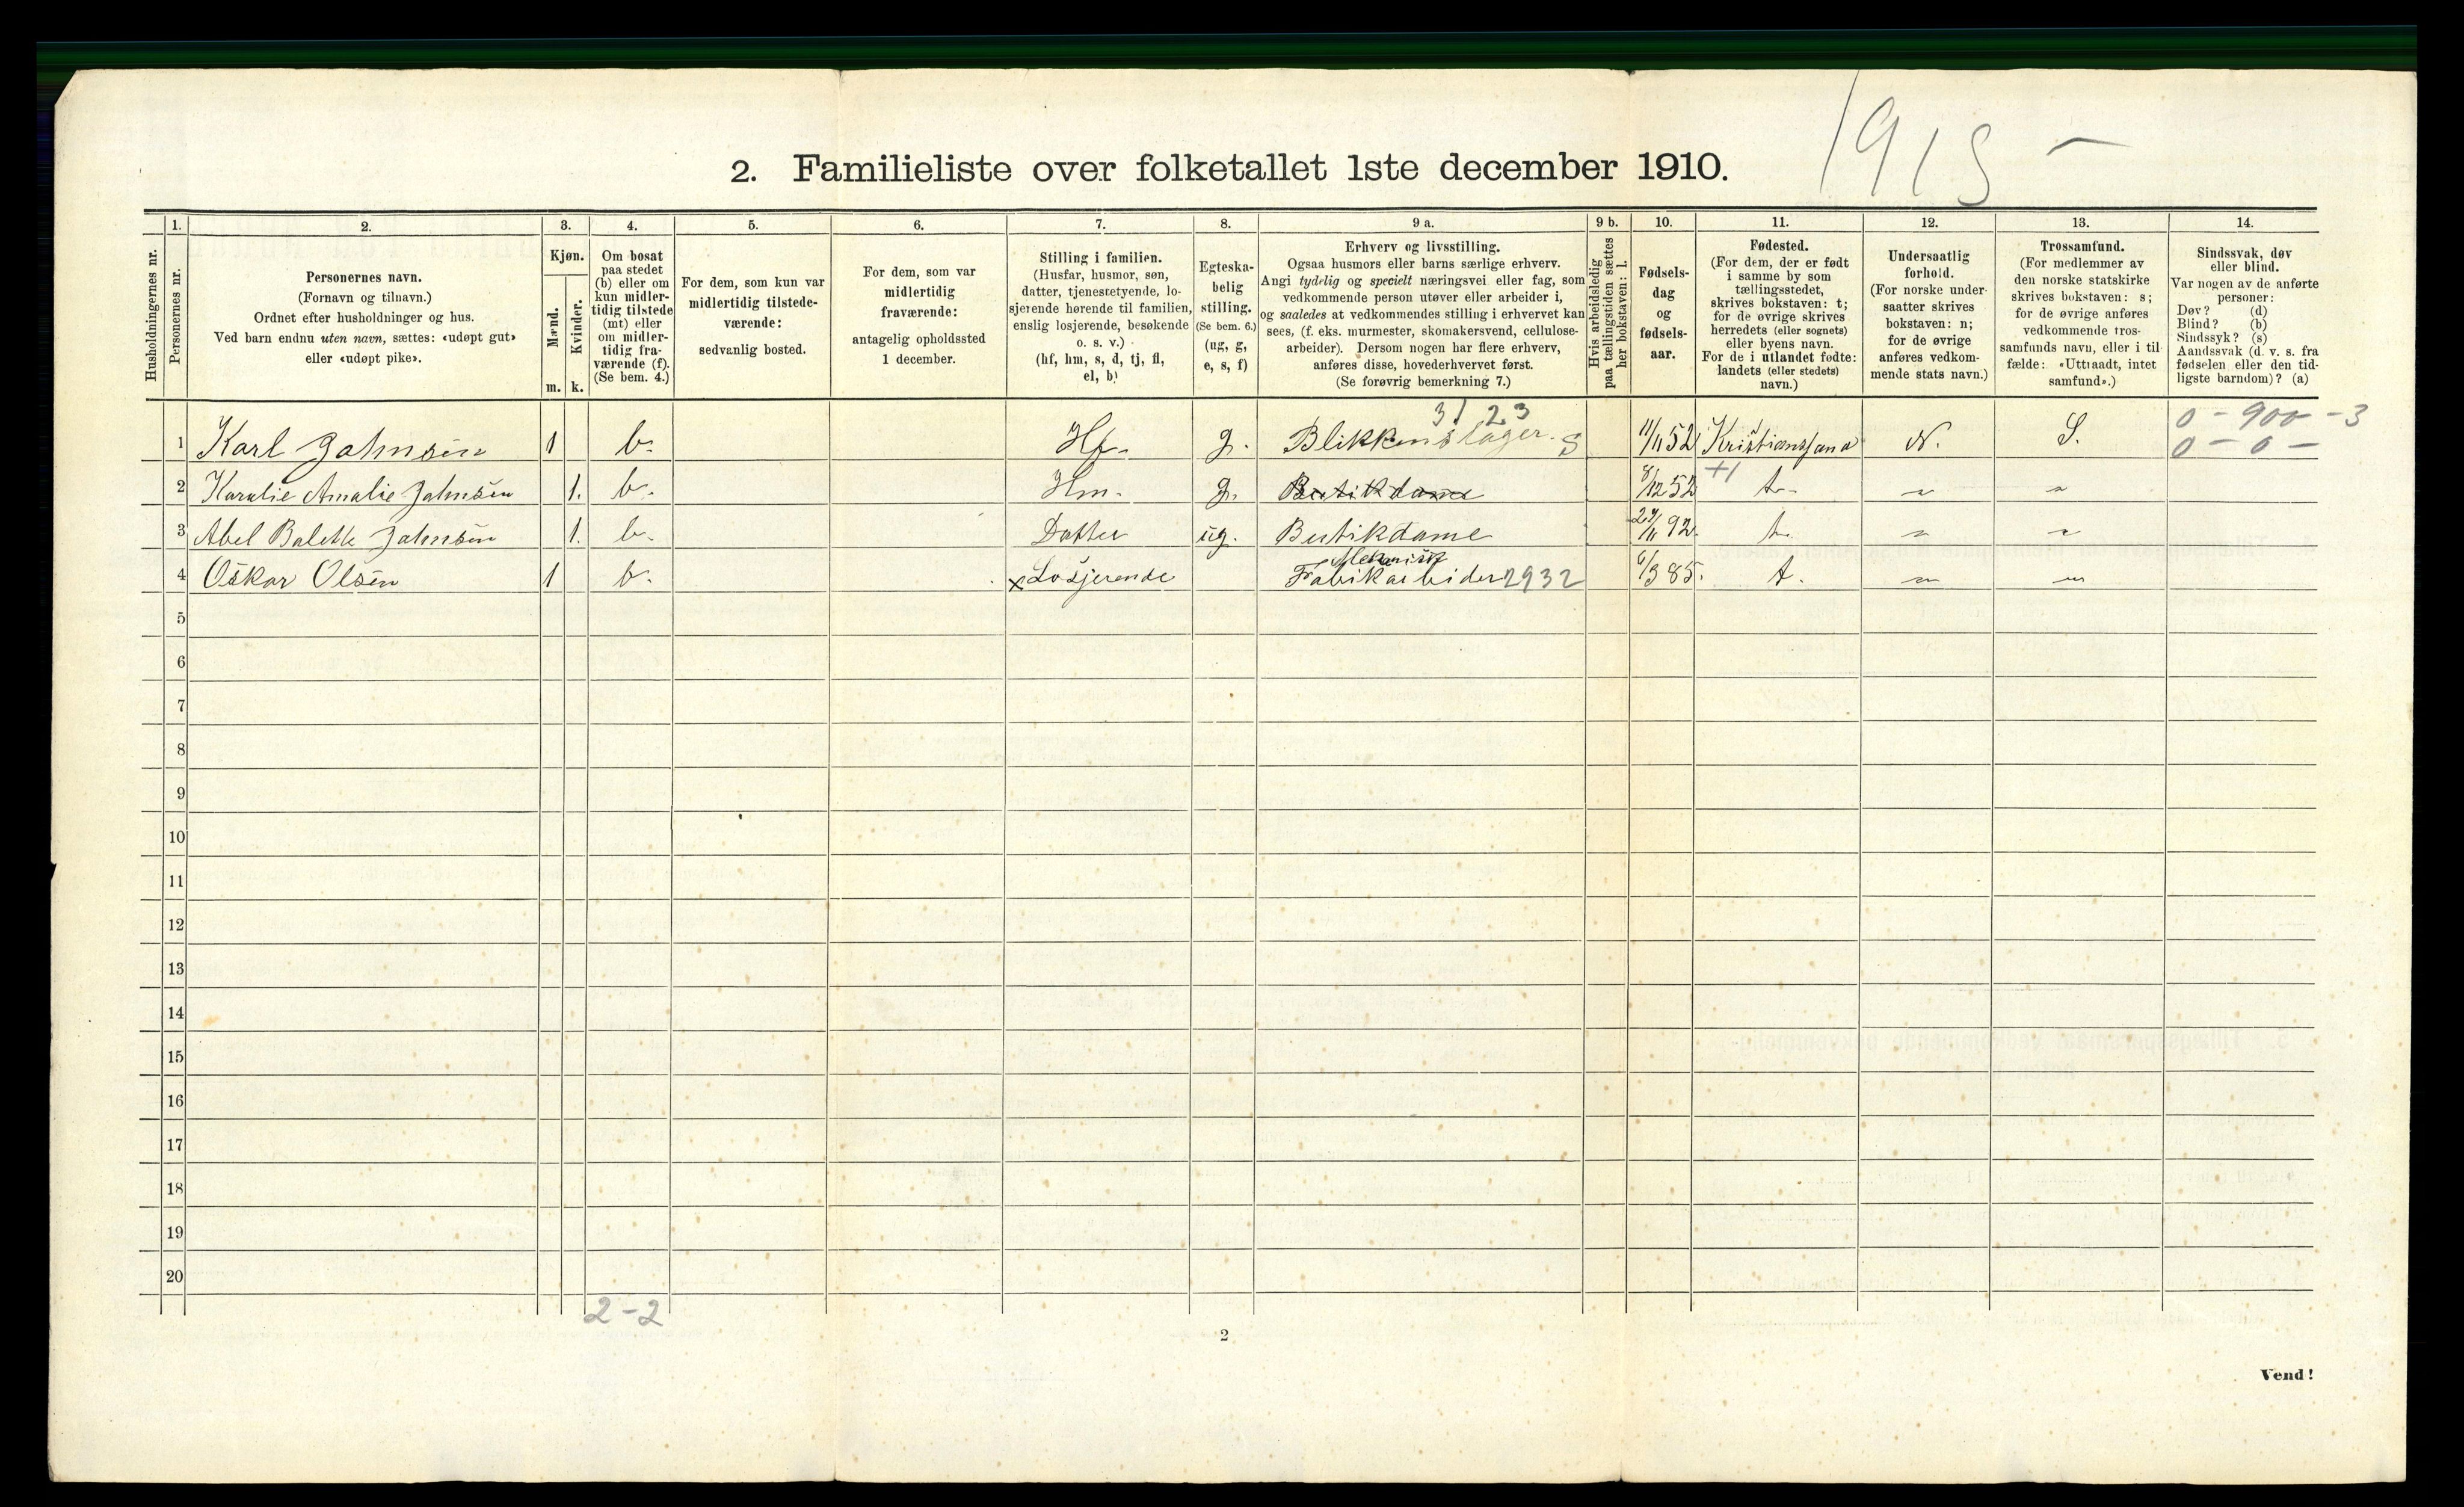 1915 –
2. Familieliste over folketallet 1ste december 1910.
1. 2. 3. 4. 5. 6. 7. 8. 9 a. 9 b. 10. 11. 12. 13. 14.
Husholdningernes nr.
Personernes nr.
Personernes navn.
(Fornavn og tilnavn.)
Ordnet efter husholdninger og hus.
Ved barn endnu uten navn, sættes: «udøpt gut»
eller «udøpt pike».
Kjøn.
Mænd.
m.
Kvinder.
k.
Om bosat
paa stedet
(b) eller om
kun midler-
tidig tilstede
(mt) eller
om midler-
tidig fra-
værende (f).
(Se bem. 4.)
For dem, som kun var
midlertidig tilstede-
værende:
sedvanlig bosted.
For dem, som var
midlertidig
fraværende:
antagelig opholdssted
1 december.
Stilling i familien.
(Husfar, husmor, søn,
datter, tjenestetyende, lo-
sjerende hørende til familien,
enslig losjerende, besøkende
o. s. v.)
(hf, hm, s, d, tj, fl,
el, b)
Egteska-
belig
stilling.
(Se bem. 6.)
(ug, g,
e, s, f)
Erhverv og livsstilling.
Ogsaa husmors eller barns særlige erhverv.
Angi tydelig og specielt næringsvei eller fag, som
vedkommende person utøver eller arbeider i,
og saaledes at vedkommendes stilling i erhvervet kan
sees, (f. eks. murmester, skomakersvend, cellulose-
arbeider). Dersom nogen har flere erhverv,
anføres disse, hovederhvervet først.
(Se forøvrig bemerkning 7.)
Hvis arbeidsledig
paa tællingstiden sættes
her bokstaven: l.
Fødsels-
dag
og
fødsels-
aar.
Fødested.
(For dem, der er født
i samme by som
tællingsstedet,
skrives bokstaven: t;
for de øvrige skrives
herredets (eller sognets)
eller byens navn.
For de i utlandet fødte:
landets (eller stedets)
navn.)
Undersaatlig
forhold.
(For norske under-
saatter skrives
bokstaven: n;
for de øvrige
anføres vedkom-
mende stats navn.)
Trossamfund.
(For medlemmer av
den norske statskirke
skrives bokstaven: s;
for de øvrige anføres
vedkommende tros-
samfunds navn, eller i til-
fælde: «Uttraadt, intet
samfund».)
Sindssvak, døv
eller blind.
Var nogen av de anførte
personer:
Døv? (d)
Blind? (b)
Sindssyk? (s)
Aandssvak (d. v. s. fra
fødselen eller den tid-
ligste barndom)? (a)
3123
0 – 900 – 3
1 Karl Jahnsen 1 b. Hf. g. Blikkenslager. S 11/11 52 Kristianssand N. S. 0 – 0 –
+1
2 Karalie Amalie Jahnsen 1. b. Hm. g. Butikdame 8/12 52 t. " "
3 Abel Balette Jahnsen 1. b. Datter ug. Butikdame 24/11 92. t. " "
Mekanisk
4 Oskar Olsen 1 b. x Losjerende Fabrikarbeider 2932 6/3 85. t. " "
5
6
7
8
9
10
11
12
13
14
15
16
17
18
19
20
2 – 2
2
Vend!